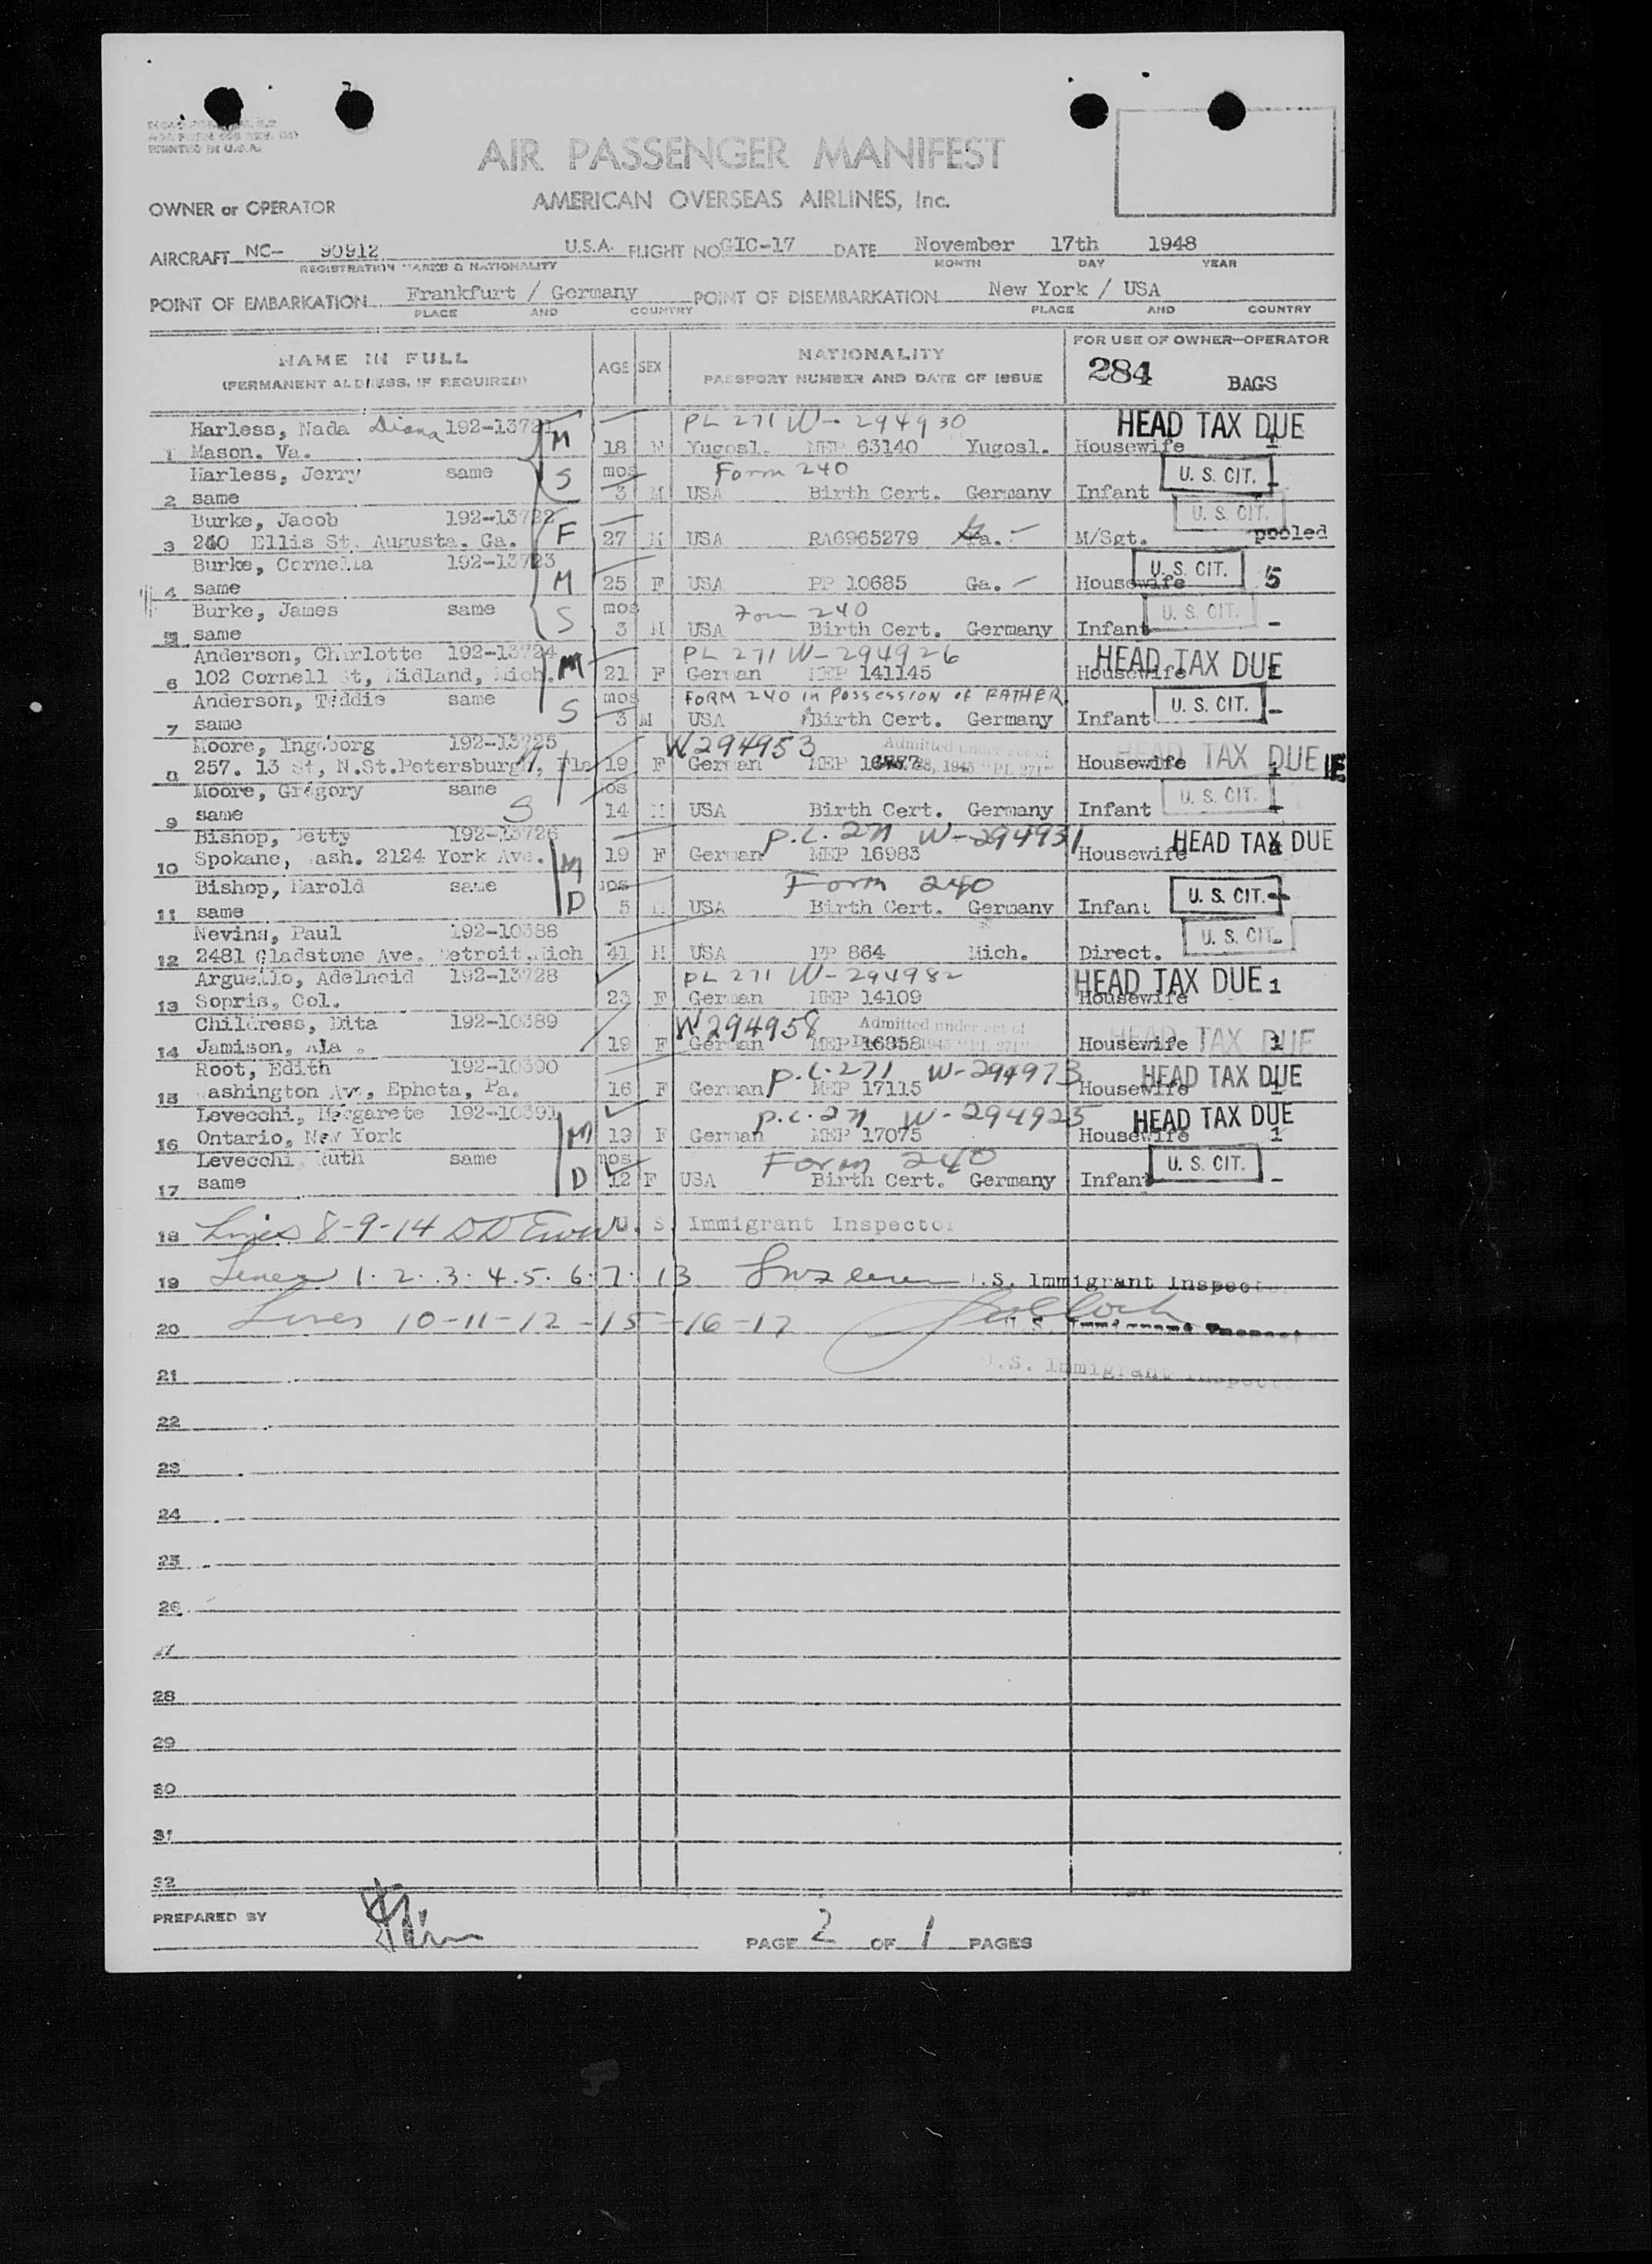 PRINTED IN U.S.A.
AIR PASSENGER MANIFEST
AMERICAN OVERSEAS AIRLINES, Inc.
OWNER or OPERATOR
AIRCRAFT NC- 90912 U.S.A. FLIGHT NO GIC-17 DATE November 17th 1948
REGISTRATION MARKS & NATIONALITY MONTH DAY YEAR
POINT OF EMBARKATION Frankfurt / Germany POINT OF DISEMBARKATION New York / USA
PLACE AND COUNTRY PLACE AND COUNTRY
NAME IN FULL AGE SEX NATIONALITY FOR USE OF OWNER-OPERATOR
(PERMANENT ADDRESS, IF REQUIRED) PASSPORT NUMBER AND DATE OF ISSUE 284 BAGS
Harless, Nada Diana 192-13721 PL 271 W- 294930 HEAD TAX DUE
1 Mason. Va. M 18 F Yugosl. MEP 63140 Yugosl. Housewife 1
Harless, Jerry same S mos Form 240 U. S. CIT.
2 same 3 M USA Birth Cert. Germany Infant -
Burke, Jacob 192-13722 U. S. CIT.
3 240 Ellis St. Augusta. Ga. F 27 M USA RA6965279 Ga. - M/Sgt. pooled
Burke, Cornelia 192-13723 U. S. CIT.
4 same M 25 F USA PP 10685 Ga. - Housewife 5
Burke, James same S mos Form 240 U. S. CIT.
5 same 3 M USA Birth Cert. Germany Infant -
Anderson, Charlotte 192-13724 PL 271 W-294926 HEAD TAX DUE
6 102 Cornell St, Midland, Mich. M 21 F German MEP 141145 Housewife 1
Anderson, Teddie same mos FORM 240 in POSSESSION of FATHER U. S. CIT.
7 same S 3 M USA Birth Cert. Germany Infant -
Moore, Ingeborg 192-13725 W294953 Admitted under act of HEAD TAX DUE
8 257. 13 St, N.St.Petersburg, Fla 19 F German MEP 28, 1945 "PL 271" Housewife 1
Moore, Gregory same S mos U. S. CIT.
9 same 14 M USA Birth Cert. Germany Infant
Bishop, Betty 192-13726 P.L. 271 W-294931 HEAD TAX DUE
10 Spokane, Wash. 2124 York Ave. M 19 F German MEP 16983 Housewife
Bishop, Harold same mos Form 240 U. S. CIT.
11 same D 5 USA Birth Cert. Germany Infant
Nevins, Paul 192-10388 U. S. CIT.
12 2481 Gladstone Ave. Detroit, Mich 41 M USA PP 864 Mich. Direct.
Arguello, Adelheid 192-13728 PL 271 W-294982 HEAD TAX DUE 1
13 Sopris, Col. 23 F German MEP 14109 Housewife
Childress, Dita 192-10389 W294958 Admitted under act of HEAD TAX DUE
14 Jamison, Ala. 19 F German MEP 16858 1945 "PL 271" Housewife 1
Root, Edith 192-10390 P.L.271 W-294973 HEAD TAX DUE
15 Washington Av., Ephata, Pa. 16 F German MEP 17115 Housewife 1
Levecchi, Margarete 192-10391 P.L.271 W-294925 HEAD TAX DUE
16 Ontario, New York M 19 F German MEP 17075 Housewife 1
Levecchi, Ruth same mos Form 240 U. S. CIT.
17 same D 12 F USA Birth Cert. Germany Infant -
18 Lines 8-9-14 U. S. Immigrant Inspector
19 Lines 1. 2. 3. 4. 5. 6. 7. 13 U.S. Immigrant Inspector
20 Lines 10-11-12-15-16-17
21 U.S. Immigrant Inspector
22
23
24
25
26
27
28
29
30
31
32
PREPARED BY
PAGE 2 OF 1 PAGES